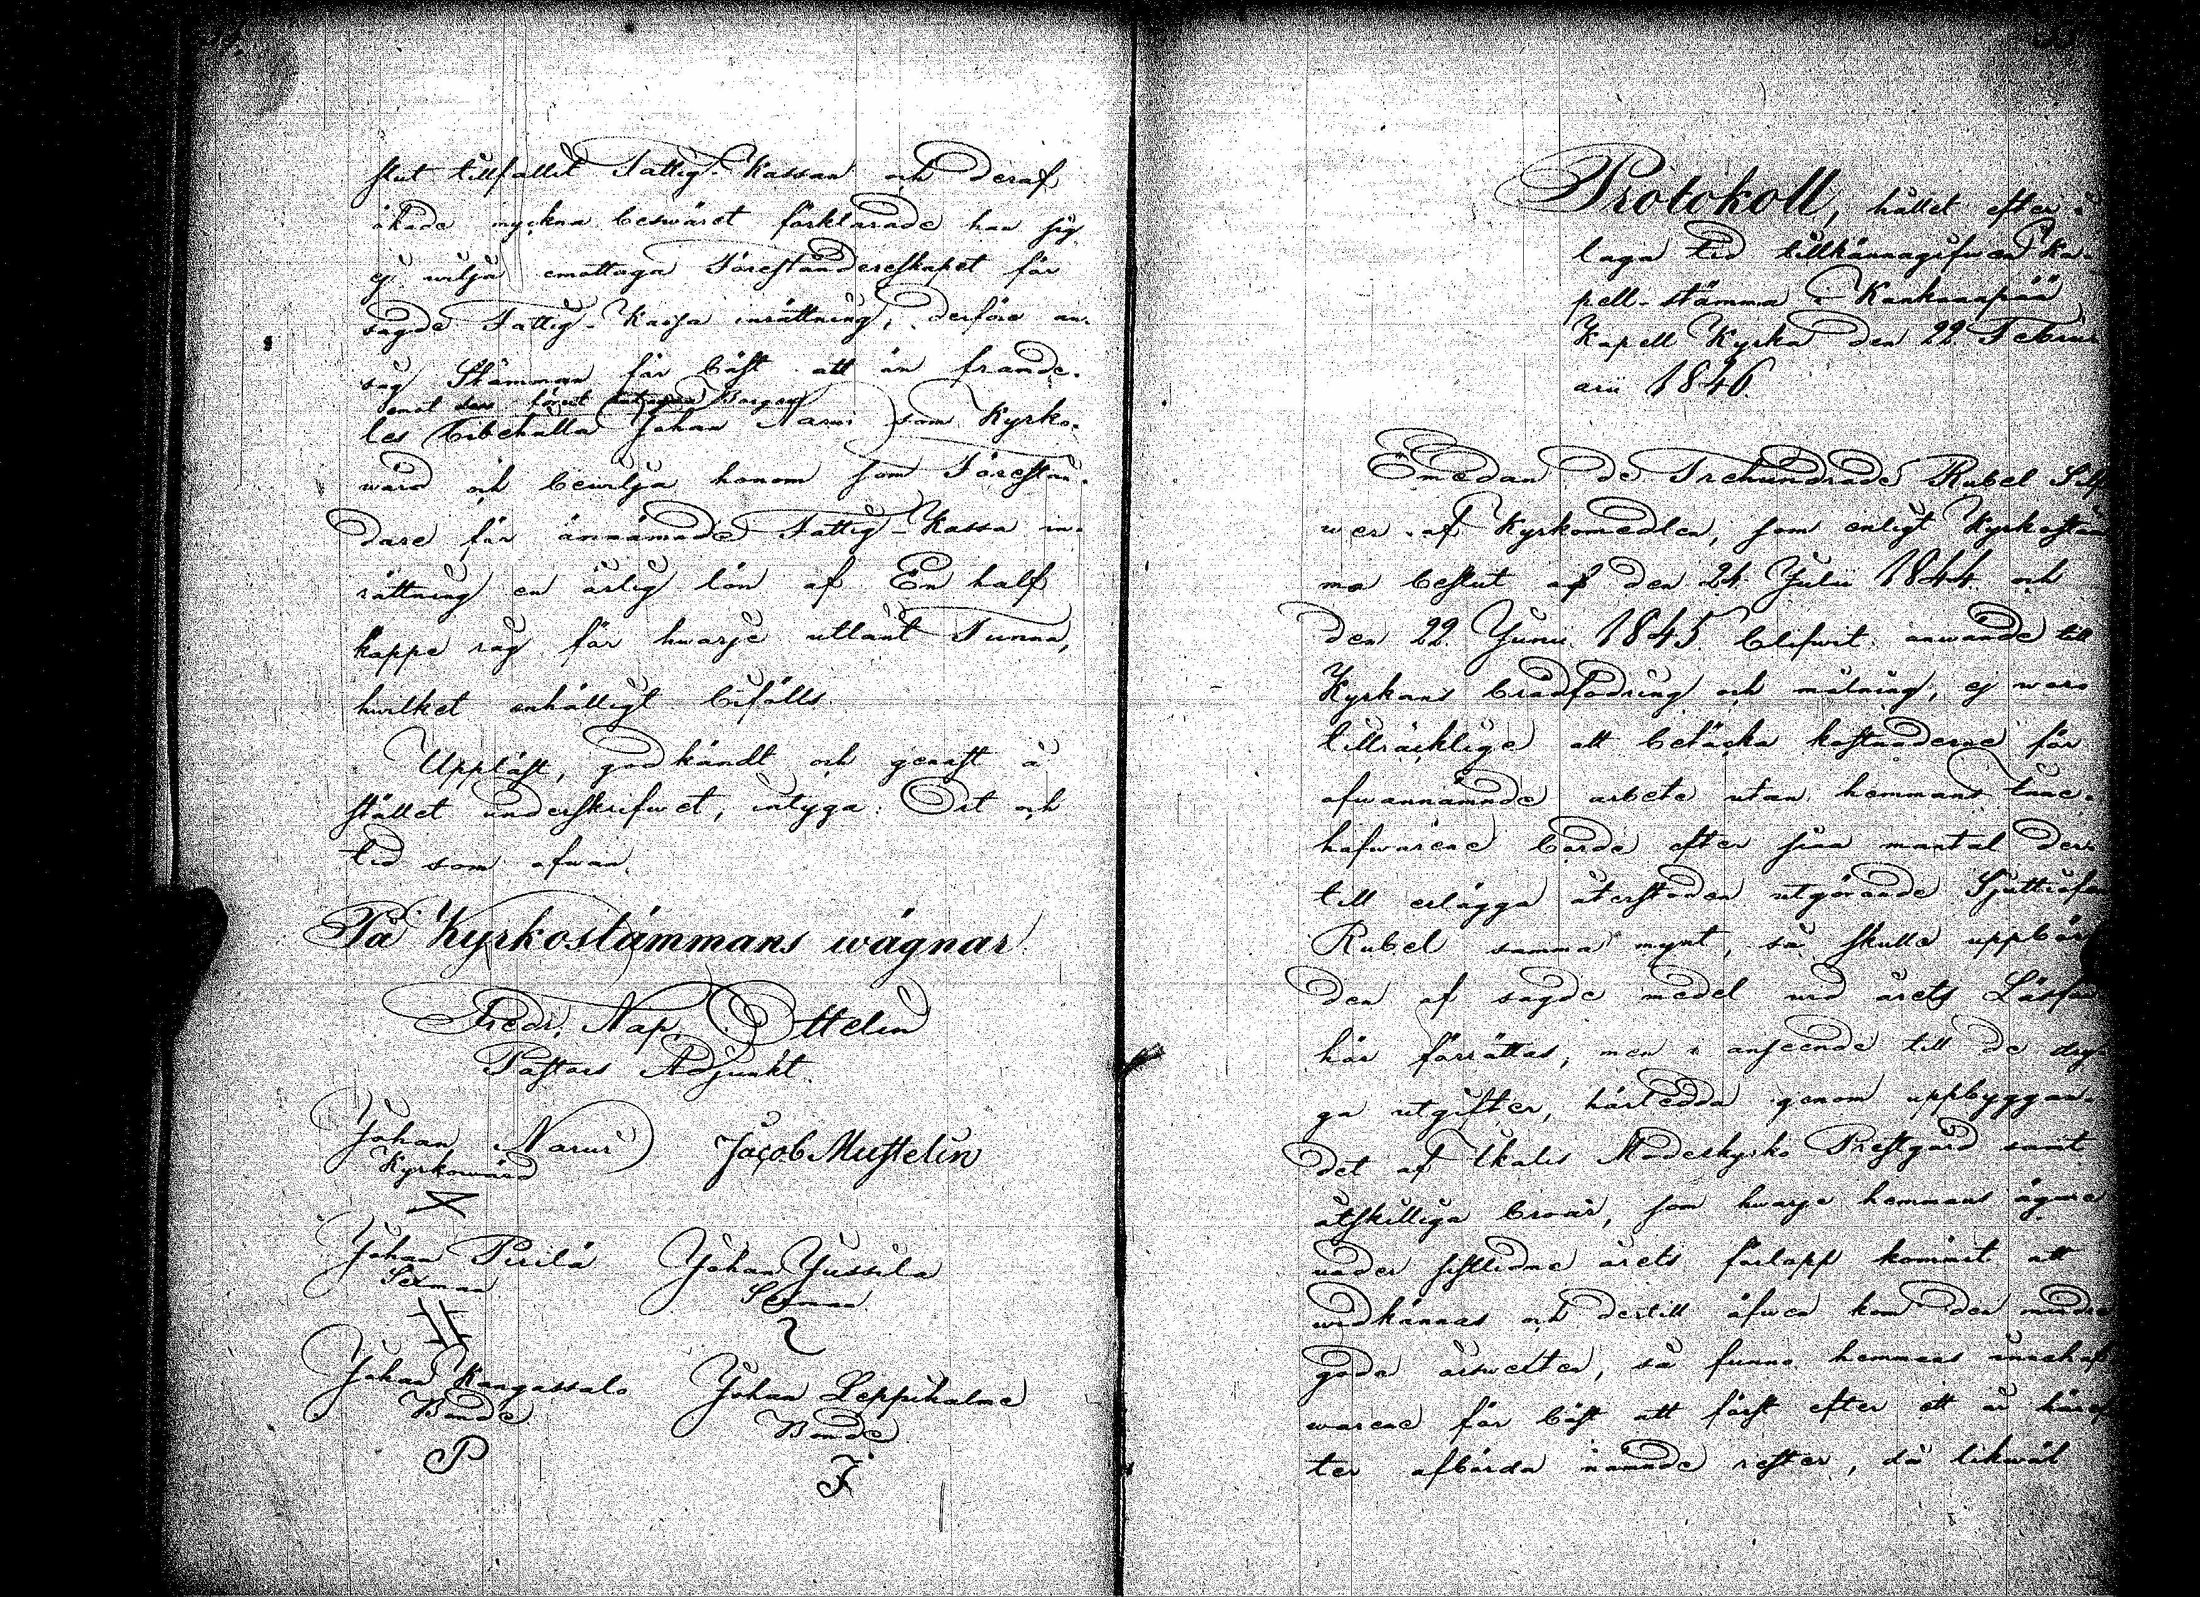 slut tillfallit Fattig-Kassan och deraf
ökade myckna beswäret förklarade han sig
ej wilja emottaga Föreståndereskapet för
sagde Fattig-Kassa inrättning; derföre an-
såg Stämman för bäst att än framde-
emot den förut Borgen
les bibehålla Johan Narwi som Kyrko-
wärd och bewilja honom som Förestån-
dare för ännämnde Fattig-Kassa in-
rättning en årlig lön af En half
kappe råg för hwarje utlånt Tunna,
hwilket enhälligt bifölls.
Uppläst, godkändt och genast å
stället underskrifwet, intyga: Ort och
tid som ofwan.
På Kyrkostämmans wägnar
Fredr. Nap. Ottelin
Pastors Adjunkt.
Johan Narwi Jacob Mustelin
Kyrkowärd
Johan Pirilä Johan Jussila
Sexman Sexman
Johan Kangassalo Johan Leppihalme
Bonde Bonde
P J
Protokoll, hållet efter i
laga tid tillkännagifwen Ka-
pell-stämma i Kankaanpää
Kapell Kyrka den 22 Febru-
arii 1846.
Emedan de Trehundrade Rubel Silf
wer af Kyrkomedlen, som enligt Kyrkostäm
mo beslut af den 24 Julii 1844 och
den 22 Junii 1845 blifwit anwände till
Kyrkans brädfodring och målning, ej woro
tillräcklige att betäcka kostnaderne för
ofwannämnde arbete utan hemmans inne-
hafwarene borde efter sina mantal der-
till erlägga återstoden utgörande Sjuttiofem
Rubel samma mynt, så skulle uppbör
den af sagde medel wid årets Läsför
hör förrättas, men i anseende till de dry-
ga utgifter, härledda genom uppbyggan-
det af Ikalis Moderkyrko Prestgård samt
åtskilliga broar, som hwarje hemmans ägare
under sistlidne årets förlopp kommit att
widkännas och dertill äfwen kom den mindre
goda årswexten, så funno hemmans innehaf
warene för bäst att först efter ett år häref
ter afbörda nämnde rester, då likwäl